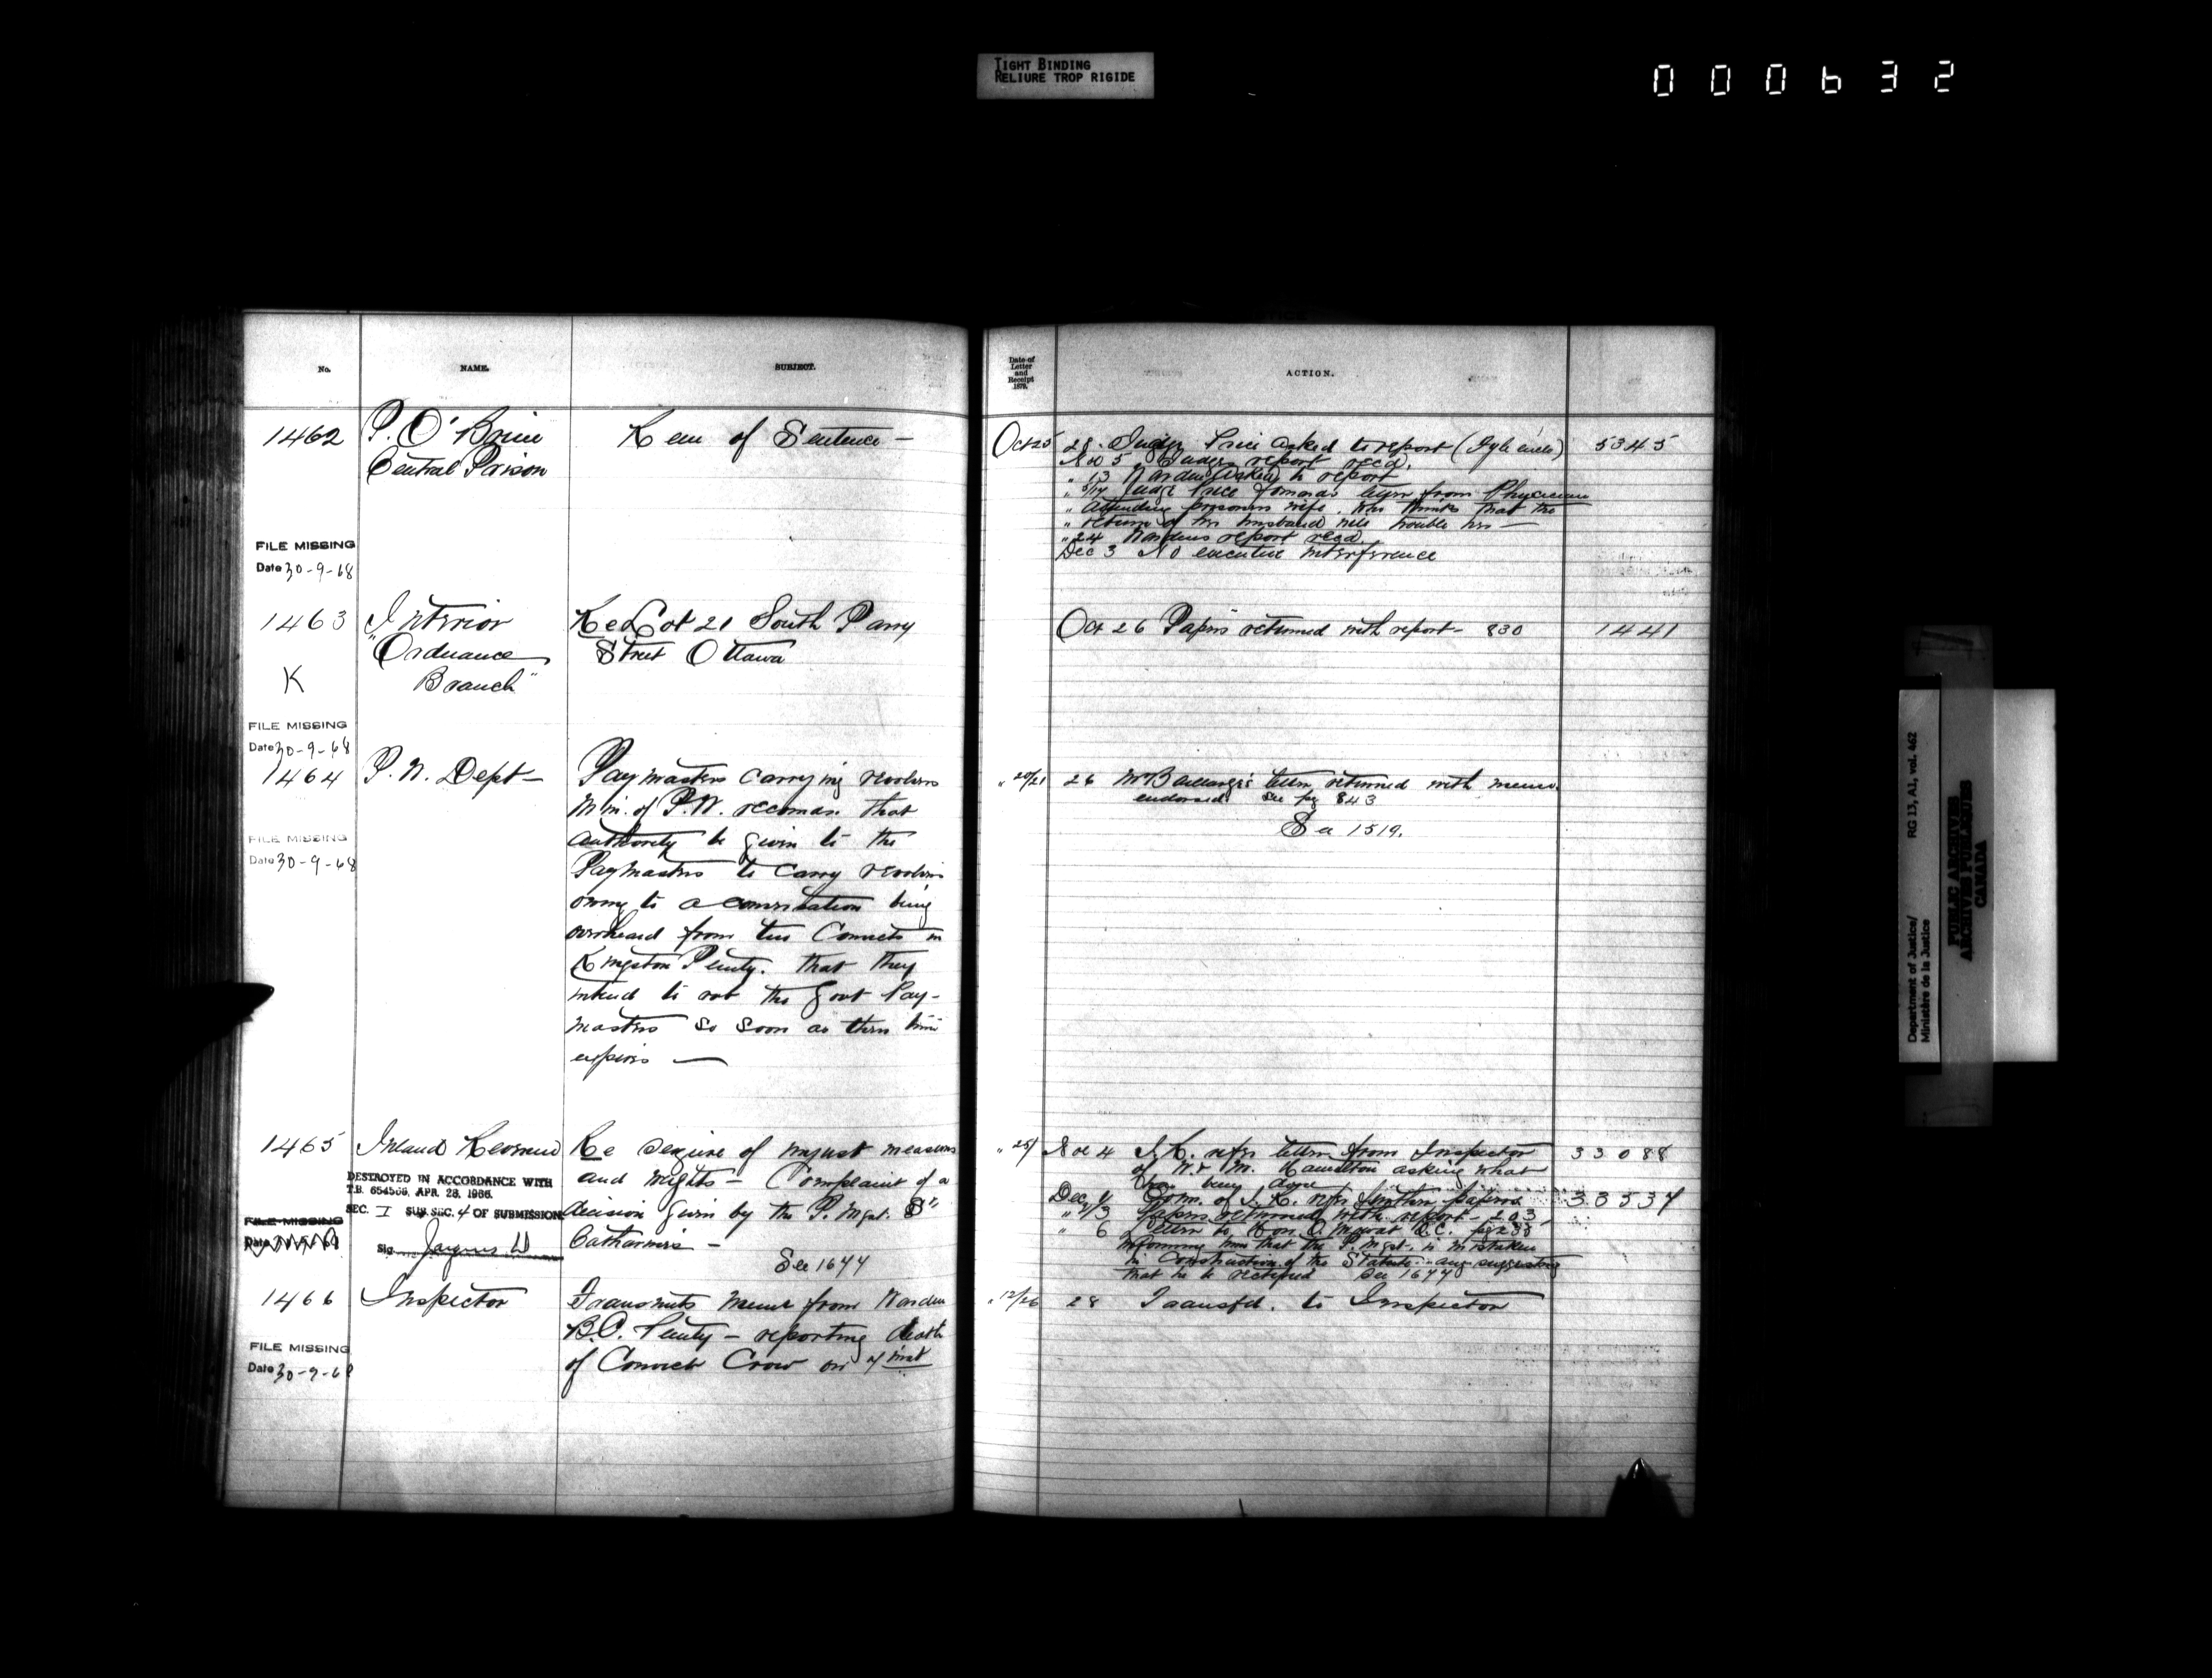 TIGHT BINDING
RELIURE TROP RIGIDE
000632
No.
NAME.
SUBJECT.
1462
P. O'Brien
Central Prison
Rem of Sentence —
FILE MISSING
Date 30-9-68
1463
Interior
"Ordnance
Branch"
K
Re Lot 21 South Parry
Street Ottawa
FILE MISSING
Date 30-9-68
1464
P. W. Dept —
Paymasters carrying revolvers
Min. of P.W. recoman that
authority be given to the
Paymasters to carry revolvers
owing to a conversation being
overheard from two Convicts in
Kingston Penty. that they
intend to rob the Govt Pay-
masters so soon as their time
expires —
FILE MISSING
Date 30-9-68
1465
Inland Revenue
Re seizure of unjust measures
and weights — Complaint of a
decision given by the P. Mgst. St
Catharines —
See 1677
DESTROYED IN ACCORDANCE WITH
T.B. 654568, APR. 28, 1966.
SEC. I SUB. SEC. 4 OF SUBMISSION
FILE MISSING
Date
Sig.
1466
Inspector
Transmits memo from Warden
B.C. Penty — reporting death
of Convict Crow on inst
FILE MISSING
Date 30-9-68
Date of
Letter
and
Receipt
1879.
ACTION.
Oct 25
28. Judge Price asked to report
5345
Nov 5 Judges report recd.
" 13 Warden asked to report
Judge Price forwards letter from Physician
" attending prisoners wife. Who thinks that the
" return of her husband will trouble her —
" 24 Wardens report recd.
Dec 3 No executive interference
Oct 26 Papers returned with report — 830
1441
" 20/21
26 Mr Baillairgé's letter returned with memo
endorsed. See pg 843
See 1519.
" 25/
Nov 4 I.R. refers letter from Inspector
33088
of W. & M. Hamilton asking what
is being done
Dec Com. of I.R. refers further papers
33537
" 3 Papers returned with report — 203
" 6 Letter to Hon O. Mowat Q.C.
informing him that the P. Mgst. is mistaken
in Construction of the Statute and suggesting
that he be notified See 1677
" 12/26
28 Transfd. to Inspector
Department of Justice/
Ministère de la Justice
RG 13, A1, vol. 462
PUBLIC ARCHIVES
ARCHIVES PUBLIQUES
CANADA